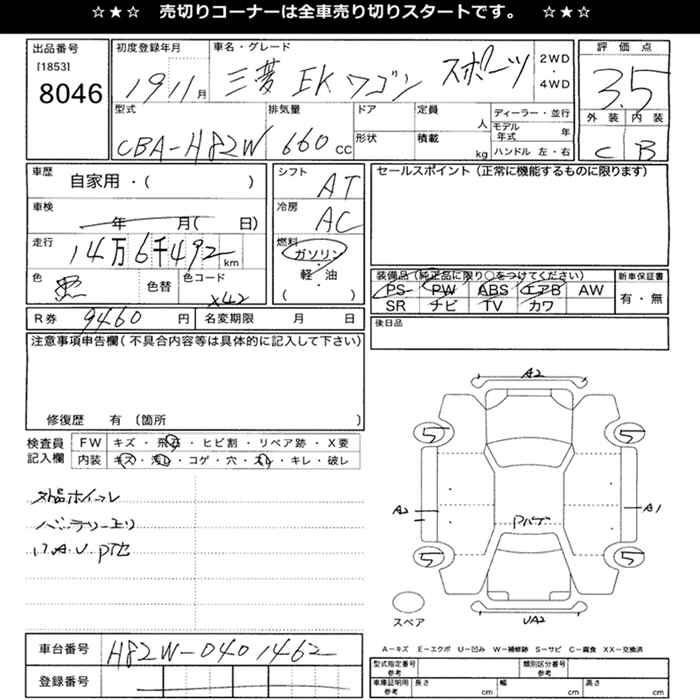 ☆★☆ 売切りコーナーは全車売り切りスタートです。 ☆★☆
出品番号
[1853]
8046
初度登録年月
19 11 月
車名・グレード
三菱 EK ワゴン スポーツ
2WD
・
4WD
評価点
3.5
外装 内装
C B
型式
CBA-H82W
排気量
660 cc
ドア
形状
定員
人
積載
kg
ディーラー・並行
モデル年式 年
ハンドル 左・右
車歴
自家用・( )
車検
年 月( 日)
走行
14万6千492 km
色
黒
色替
色コード
X42
シフト
AT
冷房
AC
燃料
ガソリン
・
軽・油
( )
セールスポイント (正常に機能するものに限ります)
装備品 (純正品に限り○をつけてください)
PS PW ABS エアB AW
SR ナビ TV カワ
新車保証書
有・無
R券 9460 円
名変期限 月 日
後日品
注意事項申告欄(不具合内容等は具体的に記入して下さい)
修復歴 有 (箇所 )
検査員
記入欄
FW キズ・飛石・ヒビ割・リペア跡・X要
内装 キズ・汚れ・コゲ・穴・スレ・キレ・破レ
外品ホイール
バッテリーより
A2
5 5
A2 A1
5 5
スペア
UA2
A-キズ E-エクボ U-凹み W-補修跡 S-サビ C-腐食 XX-交換済
車台番号 H82W-0401462
登録番号
型式指定番号
参考
類別区分番号
参考
車庫証明用
参考
長さ cm
幅 cm
高さ cm